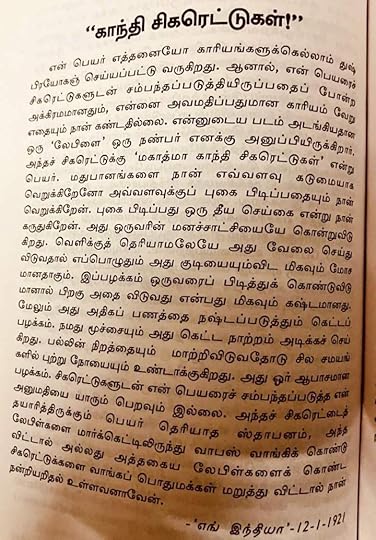 “காந்தி சிகரெட்டுகள்!”
என் பெயர் எத்தனையோ காரியங்களுக்கெல்லாம் துஷ்
பிரயோகஞ் செய்யப்பட்டு வருகிறது. ஆனால், என் பெயரைச்
சிகரெட்டுகளுடன் சம்பந்தப்படுத்தியிருப்பதைப் போன்ற
அக்கிரமமானதும், என்னை அவமதிப்பதுமான காரியம் வேறு
எதையும் நான் கண்டதில்லை. என்னுடைய படம் அடங்கியதான
ஒரு ‘லேபிளை’ ஒரு நண்பர் எனக்கு அனுப்பியிருக்கிறார்.
அந்தச் சிகரெட்டுக்கு ‘மகாத்மா காந்தி சிகரெட்டுகள்’ என்று
பெயர். மதுபானங்களை நான் எவ்வளவு கடுமையாக
வெறுக்கிறேனோ அவ்வளவுக்குப் புகை பிடிப்பதையும் நான்
வெறுக்கிறேன். புகை பிடிப்பது ஒரு தீய செய்கை என்று நான்
கருதுகிறேன். அது ஒருவரின் மனச்சாட்சியையே கொன்றுவிடு
கிறது. வெளிக்குத் தெரியாமலேயே அது வேலை செய்து
விடுவதால் எப்பொழுதும் அது குடியையும்விட மிகவும் மோச
மானதாகும். இப்பழக்கம் ஒருவரைப் பிடித்துக் கொண்டுவிடு
மானால் பிறகு அதை விடுவது என்பது மிகவும் கஷ்டமானது.
மேலும் அது அதிகப் பணத்தை நஷ்டப்படுத்தும் கெட்டப்
பழக்கம். நமது மூச்சையும் அது கெட்ட நாற்றம் அடிக்கச் செய்
கிறது. பல்லின் நிறத்தையும் மாற்றிவிடுவதோடு சில சமயங்
களில் புற்று நோயையும் உண்டாக்குகிறது. அது ஓர் ஆபாசமான
பழக்கம். சிகரெட்டுகளுடன் என் பெயரைச் சம்பந்தப்படுத்த என்
அனுமதியை யாரும் பெறவும் இல்லை. அந்தச் சிகரெட்டைத்
தயாரித்திருக்கும் பெயர் தெரியாத ஸ்தாபனம், அந்த
லேபிள்களை மார்க்கெட்டிலிருந்து வாபஸ் வாங்கிக் கொண்டு
விட்டால் அல்லது அத்தகைய லேபிள்களைக் கொண்ட
சிகரெட்டுக்களை வாங்கப் பொதுமக்கள் மறுத்து விட்டால் நான்
நன்றியறிதல் உள்ளவனாவேன்.
-‘எங் இந்தியா’-12-1-1921